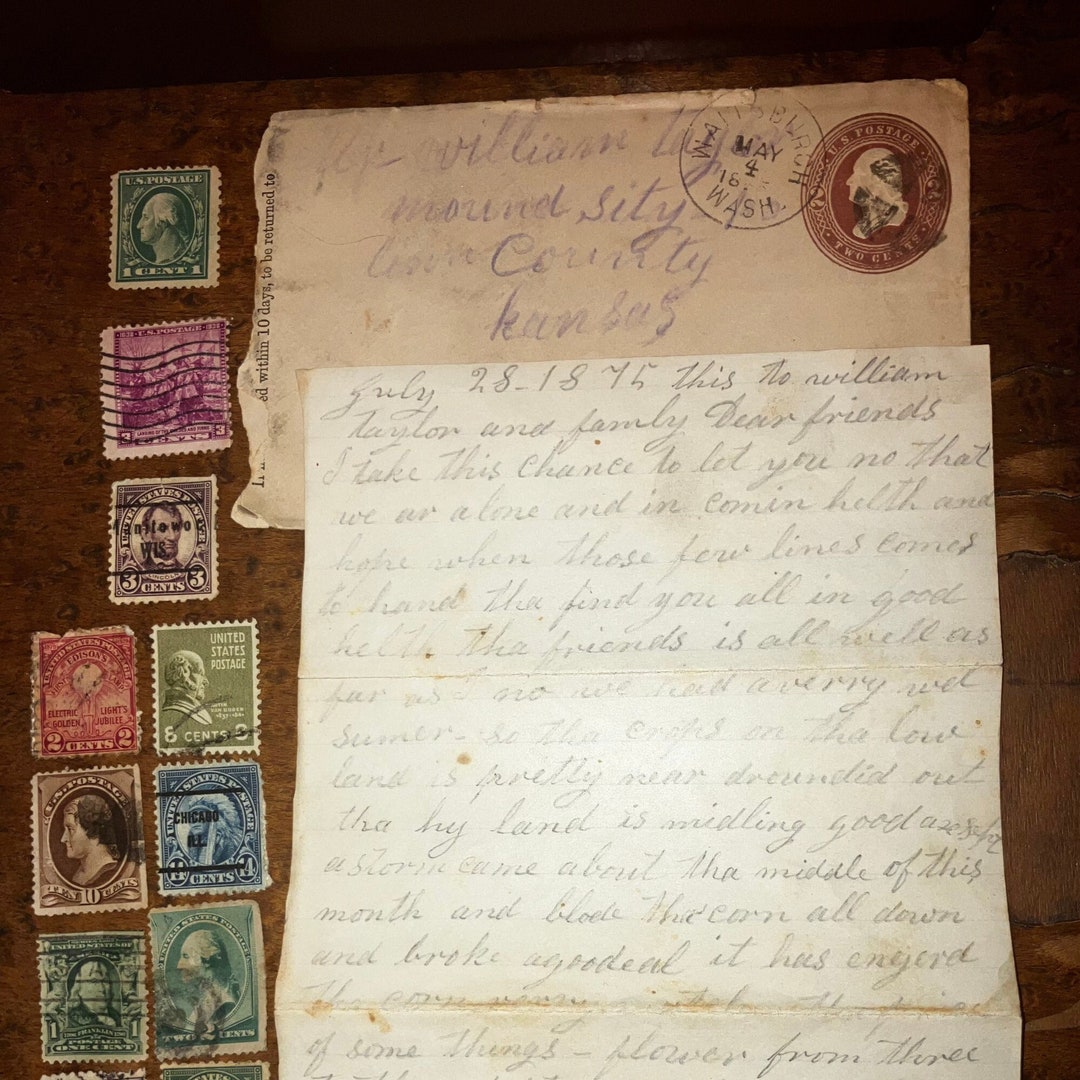 WAITSBURGH
MAY
4
18
WASH.
U.S. POSTAGE
2
TWO CENTS
william Taylor
mound sity
County
kansas
ed within 10 days, to be returned to
U.S. POSTAGE
1 CENT 1
U.S. POSTAGE
LANDING OF THE SWEDES AND FINNS
3 CENTS 3
UNITED STATES POSTAGE
nitowo
WIS.
LINCOLN
3 CENTS 3
UNITED STATES POSTAGE
EDISON'S
FIRST LAMP
ELECTRIC LIGHT'S
GOLDEN JUBILEE
2 CENTS 2
UNITED
STATES
POSTAGE
MARTIN
VAN BUREN
8 CENTS 8
U.S. POSTAGE
TEN 10 CENTS
UNITED STATES POSTAGE
CHICAGO
ILL.
14 CENTS 14
UNITED STATES OF
FRANKLIN
1 POSTAGE 1
ONE CENT
UNITED STATES POSTAGE
TWO CENTS
July 28-1875 this to william
taylor and family Dear friends
I take this chance to let you no that
we ar alone and in comin helth and
hope when those few lines comes
to hand tha find you all in good
helth tha friends is all well as
far as I no we had a verry wet
sumer - so tha crops on tha low
land is pretty near droundid out
tha hy land is midling good
a storm came about tha middle of this
month and blode the corn all down
and broke agoodeal it has engerd
the corn verry
of some things - flower from three